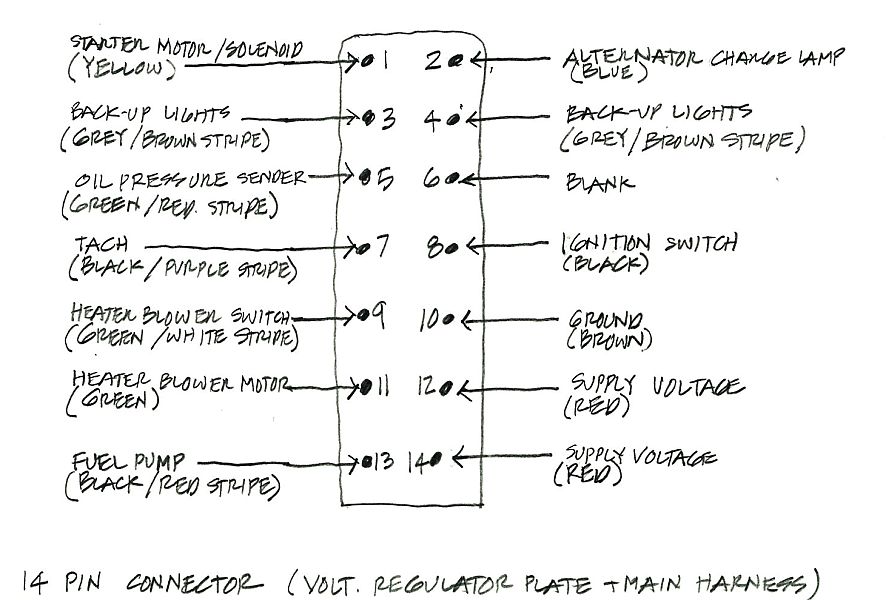 STARTER MOTOR/SOLENOID
(YELLOW)
1
2
ALTERNATOR CHARGE LAMP
(BLUE)
BACK-UP LIGHTS
(GREY/BROWN STRIPE)
3
4
BACK-UP LIGHTS
(GREY/BROWN STRIPE)
OIL PRESSURE SENDER
(GREEN/RED. STRIPE)
5
6
BLANK
TACH
(BLACK/PURPLE STRIPE)
7
8
IGNITION SWITCH
(BLACK)
HEATER BLOWER SWITCH
(GREEN/WHITE STRIPE)
9
10
GROUND
(BROWN)
HEATER BLOWER MOTOR
(GREEN)
11
12
SUPPLY VOLTAGE
(RED)
FUEL PUMP
(BLACK/RED STRIPE)
13
14
SUPPLY VOLTAGE
(RED)
14 PIN CONNECTOR (VOLT. REGULATOR PLATE + MAIN HARNESS)